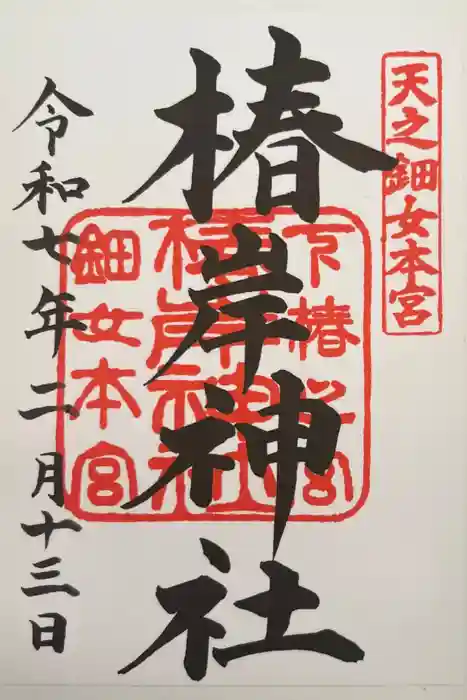 天之鈿女本宮
椿岸神社
下椿之宮
椿岸神社
鈿女本宮
令和七年二月十三日